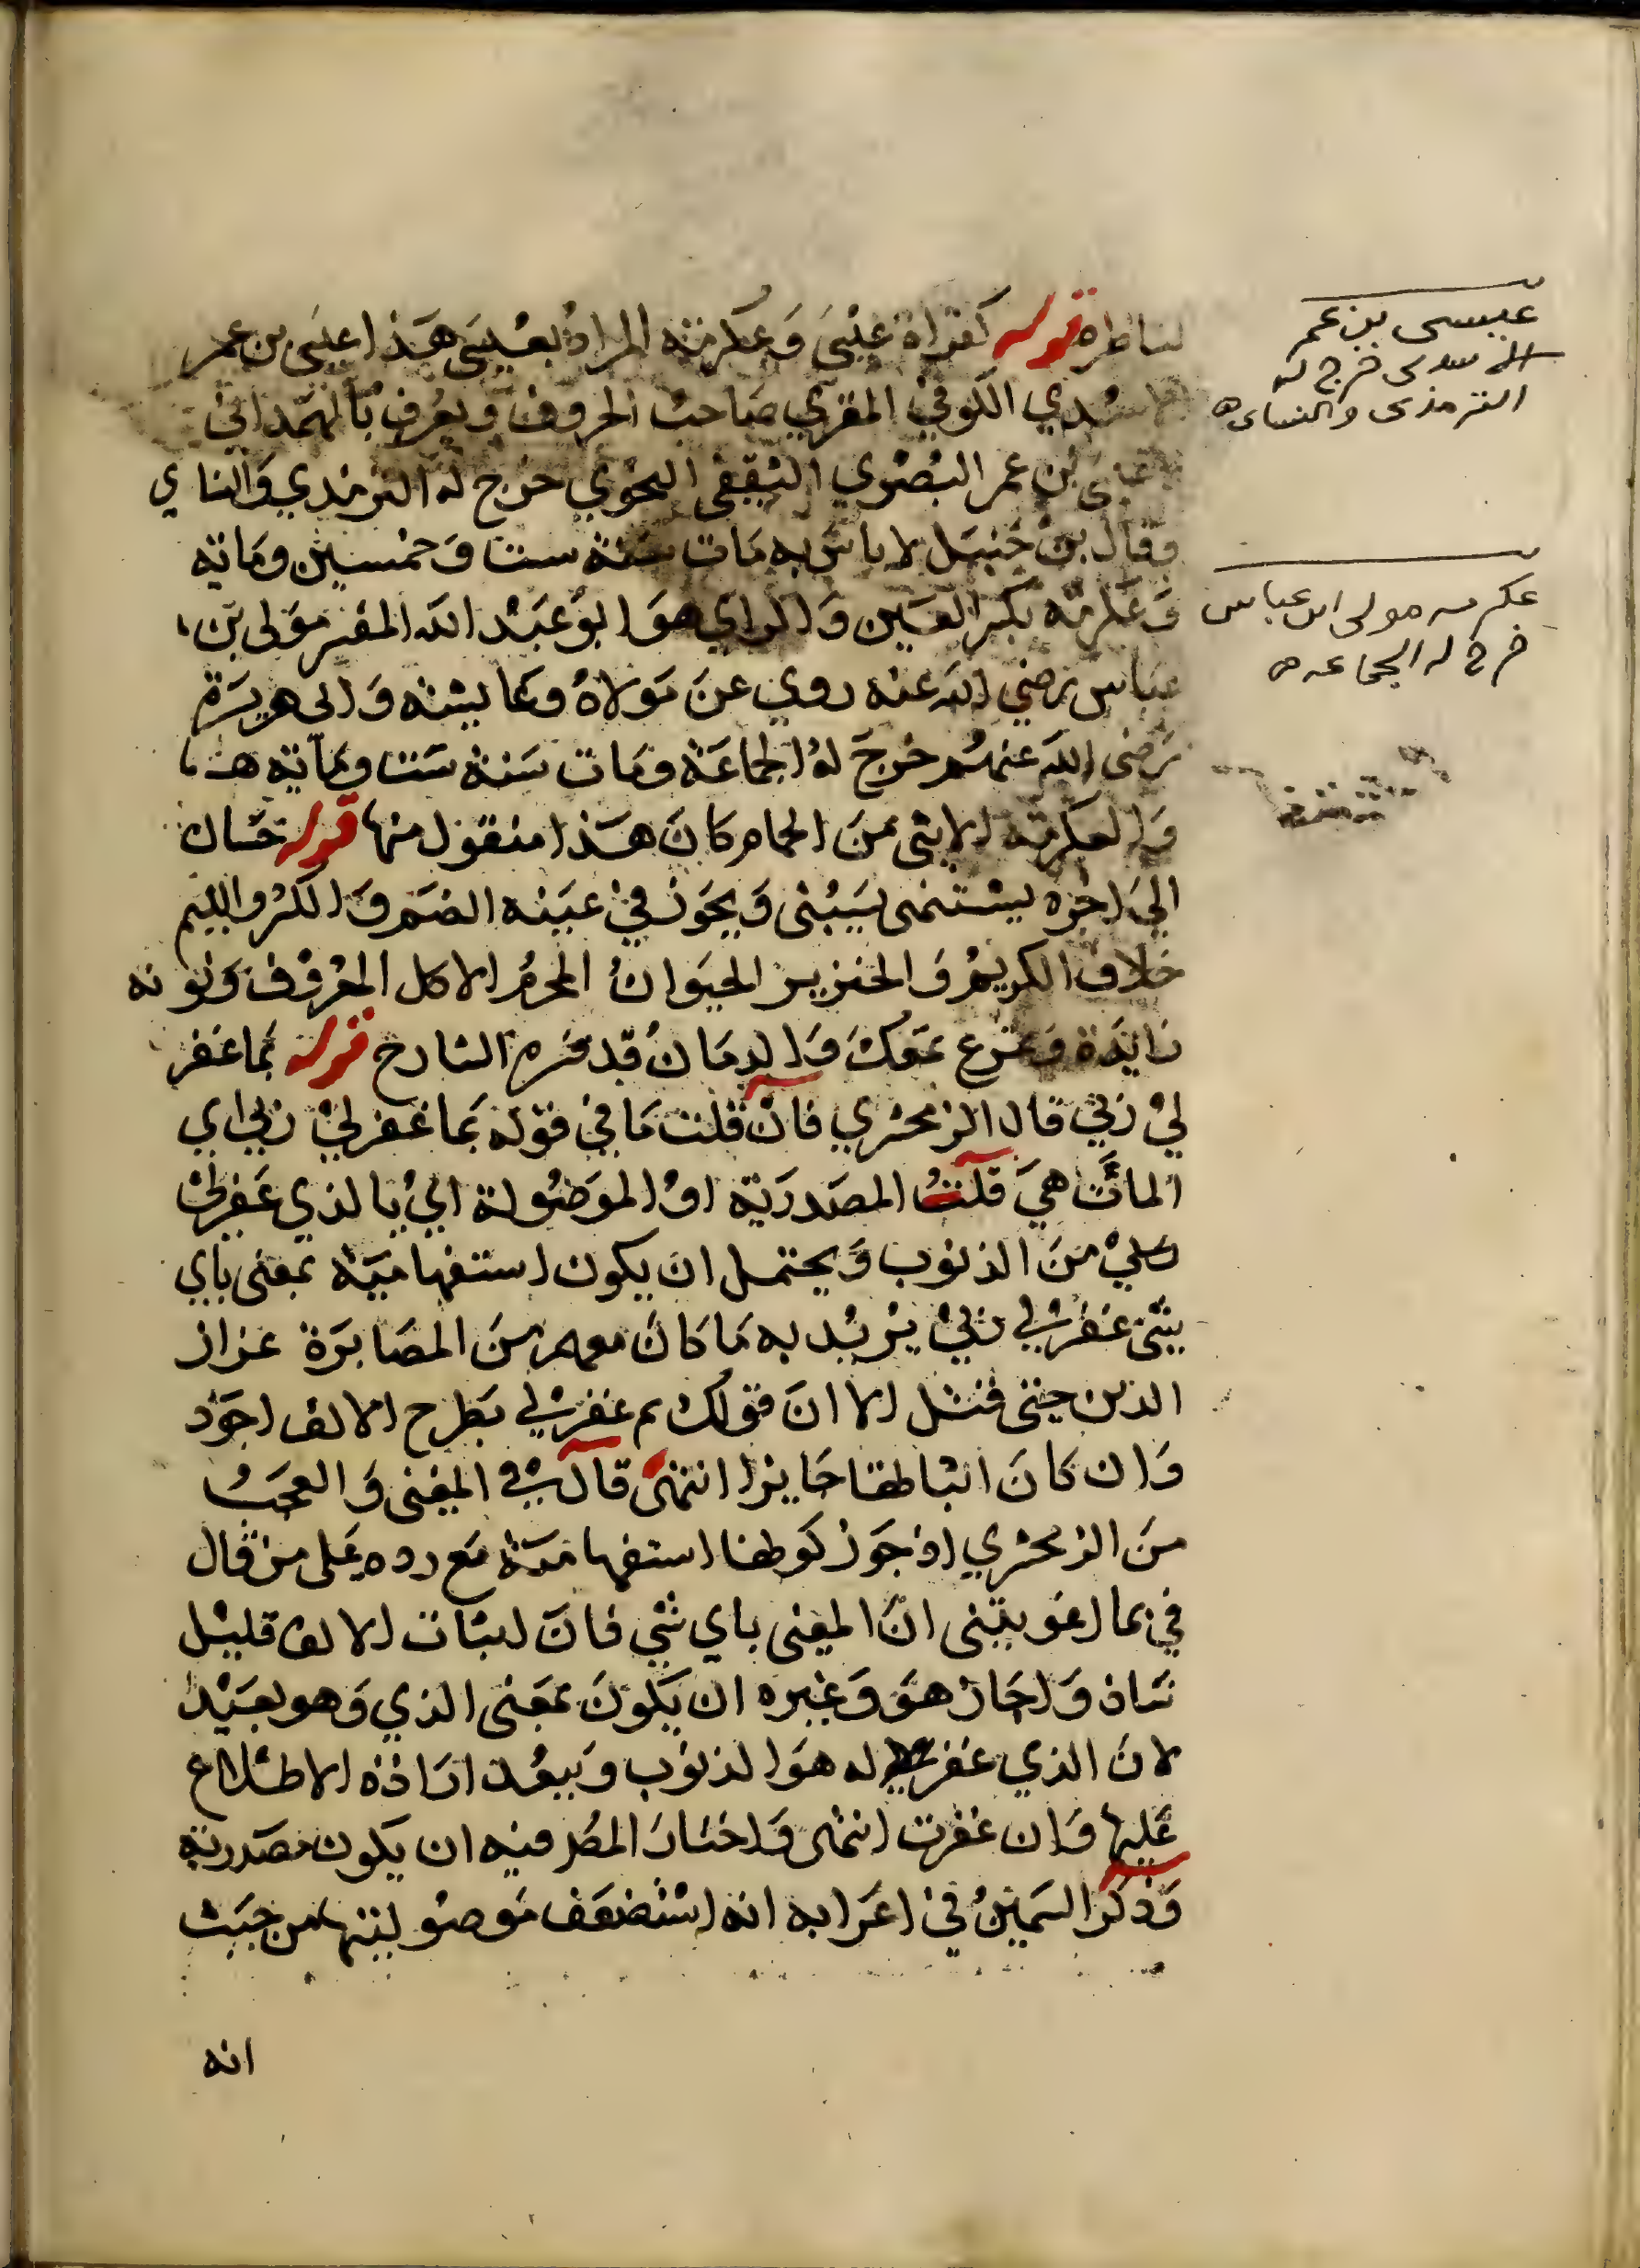 لناظره قوله كقراة عيسى وعكرمة المراد بعيسى هذا عيسى بن عمر
الاسدي الكوفي المقري صاحب الحروف ويعرف بالهمداني
بن عمر البصري الثقفي النحوي خرج له الترمذي والناي
وقال بن حنبل لا باس به مات سنة ست وخمسين وماية
وعكرمة بكسر العين والراي هو ابو عبد الله المفسر مولى بن
عباس رضي الله عنه روي عن مولاه وعايشة وابى هريرة
رضى الله عنهم خرج له الجماعة ومات سنة ست وماية هـ
والعكرمة الانثى من الحمام كان هذا منقول منها قوله حسان
الي اخره يستنمى يسبنى ويجوز في عينه الضم والكسر واللئيم
خلاف الكريم والخنزير الحيوان المحرم الاكل المعروف ونونه
زايدة وتمرغ تمعك والدمان قد فسره الشارح قوله بما غفر
لي ربي قال الزمخشري فان قلت ما في قوله بما غفر لي ربي اي
الماآت هي قلت المصدرية او الموصولة اي بالذي غفر لي
ربي من الذنوب ويحتمل ان يكون استفهامية بمعنى باي
شي غفر لي ربي يريد به ما كان معهم من المصابرة عزاز
الدين حتى قتل الا ان قولك بم غفر لي بطرح الالف اجود
وان كان اثباطها جايزا انتهى قال في المغنى والعجب
من الزمخشري اذ جوز كونها استفهامية مع رده على من قال
في بما اغويتنى ان المعنى باي شي فان اثبات الالف قليل
شاذ واجاز هو وغيره ان يكون بمعنى الذي وهو بعيد
لان الذي غفر له هو الذنوب ويبعد ارادة الاطلاع
عليها وان غفرت انتهى واختار المص فيه ان يكون مصدرية
وذكر السمين في اعرابه انه استضعف موصوليتها من حيث
انه
عيسى بن عمر
الاسدى خرج له
الترمذى والنساى ه
عكرمه مولى ابن عباس
خرج له الجماعه ه